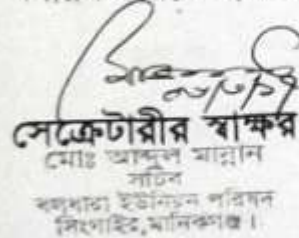 সেক্রেটারীর স্বাক্ষর
মোঃ আব্দুল মান্নান
সচিব
বলধারা ইউনিয়ন পরিষদ
সিংগাইর, মানিকগঞ্জ।